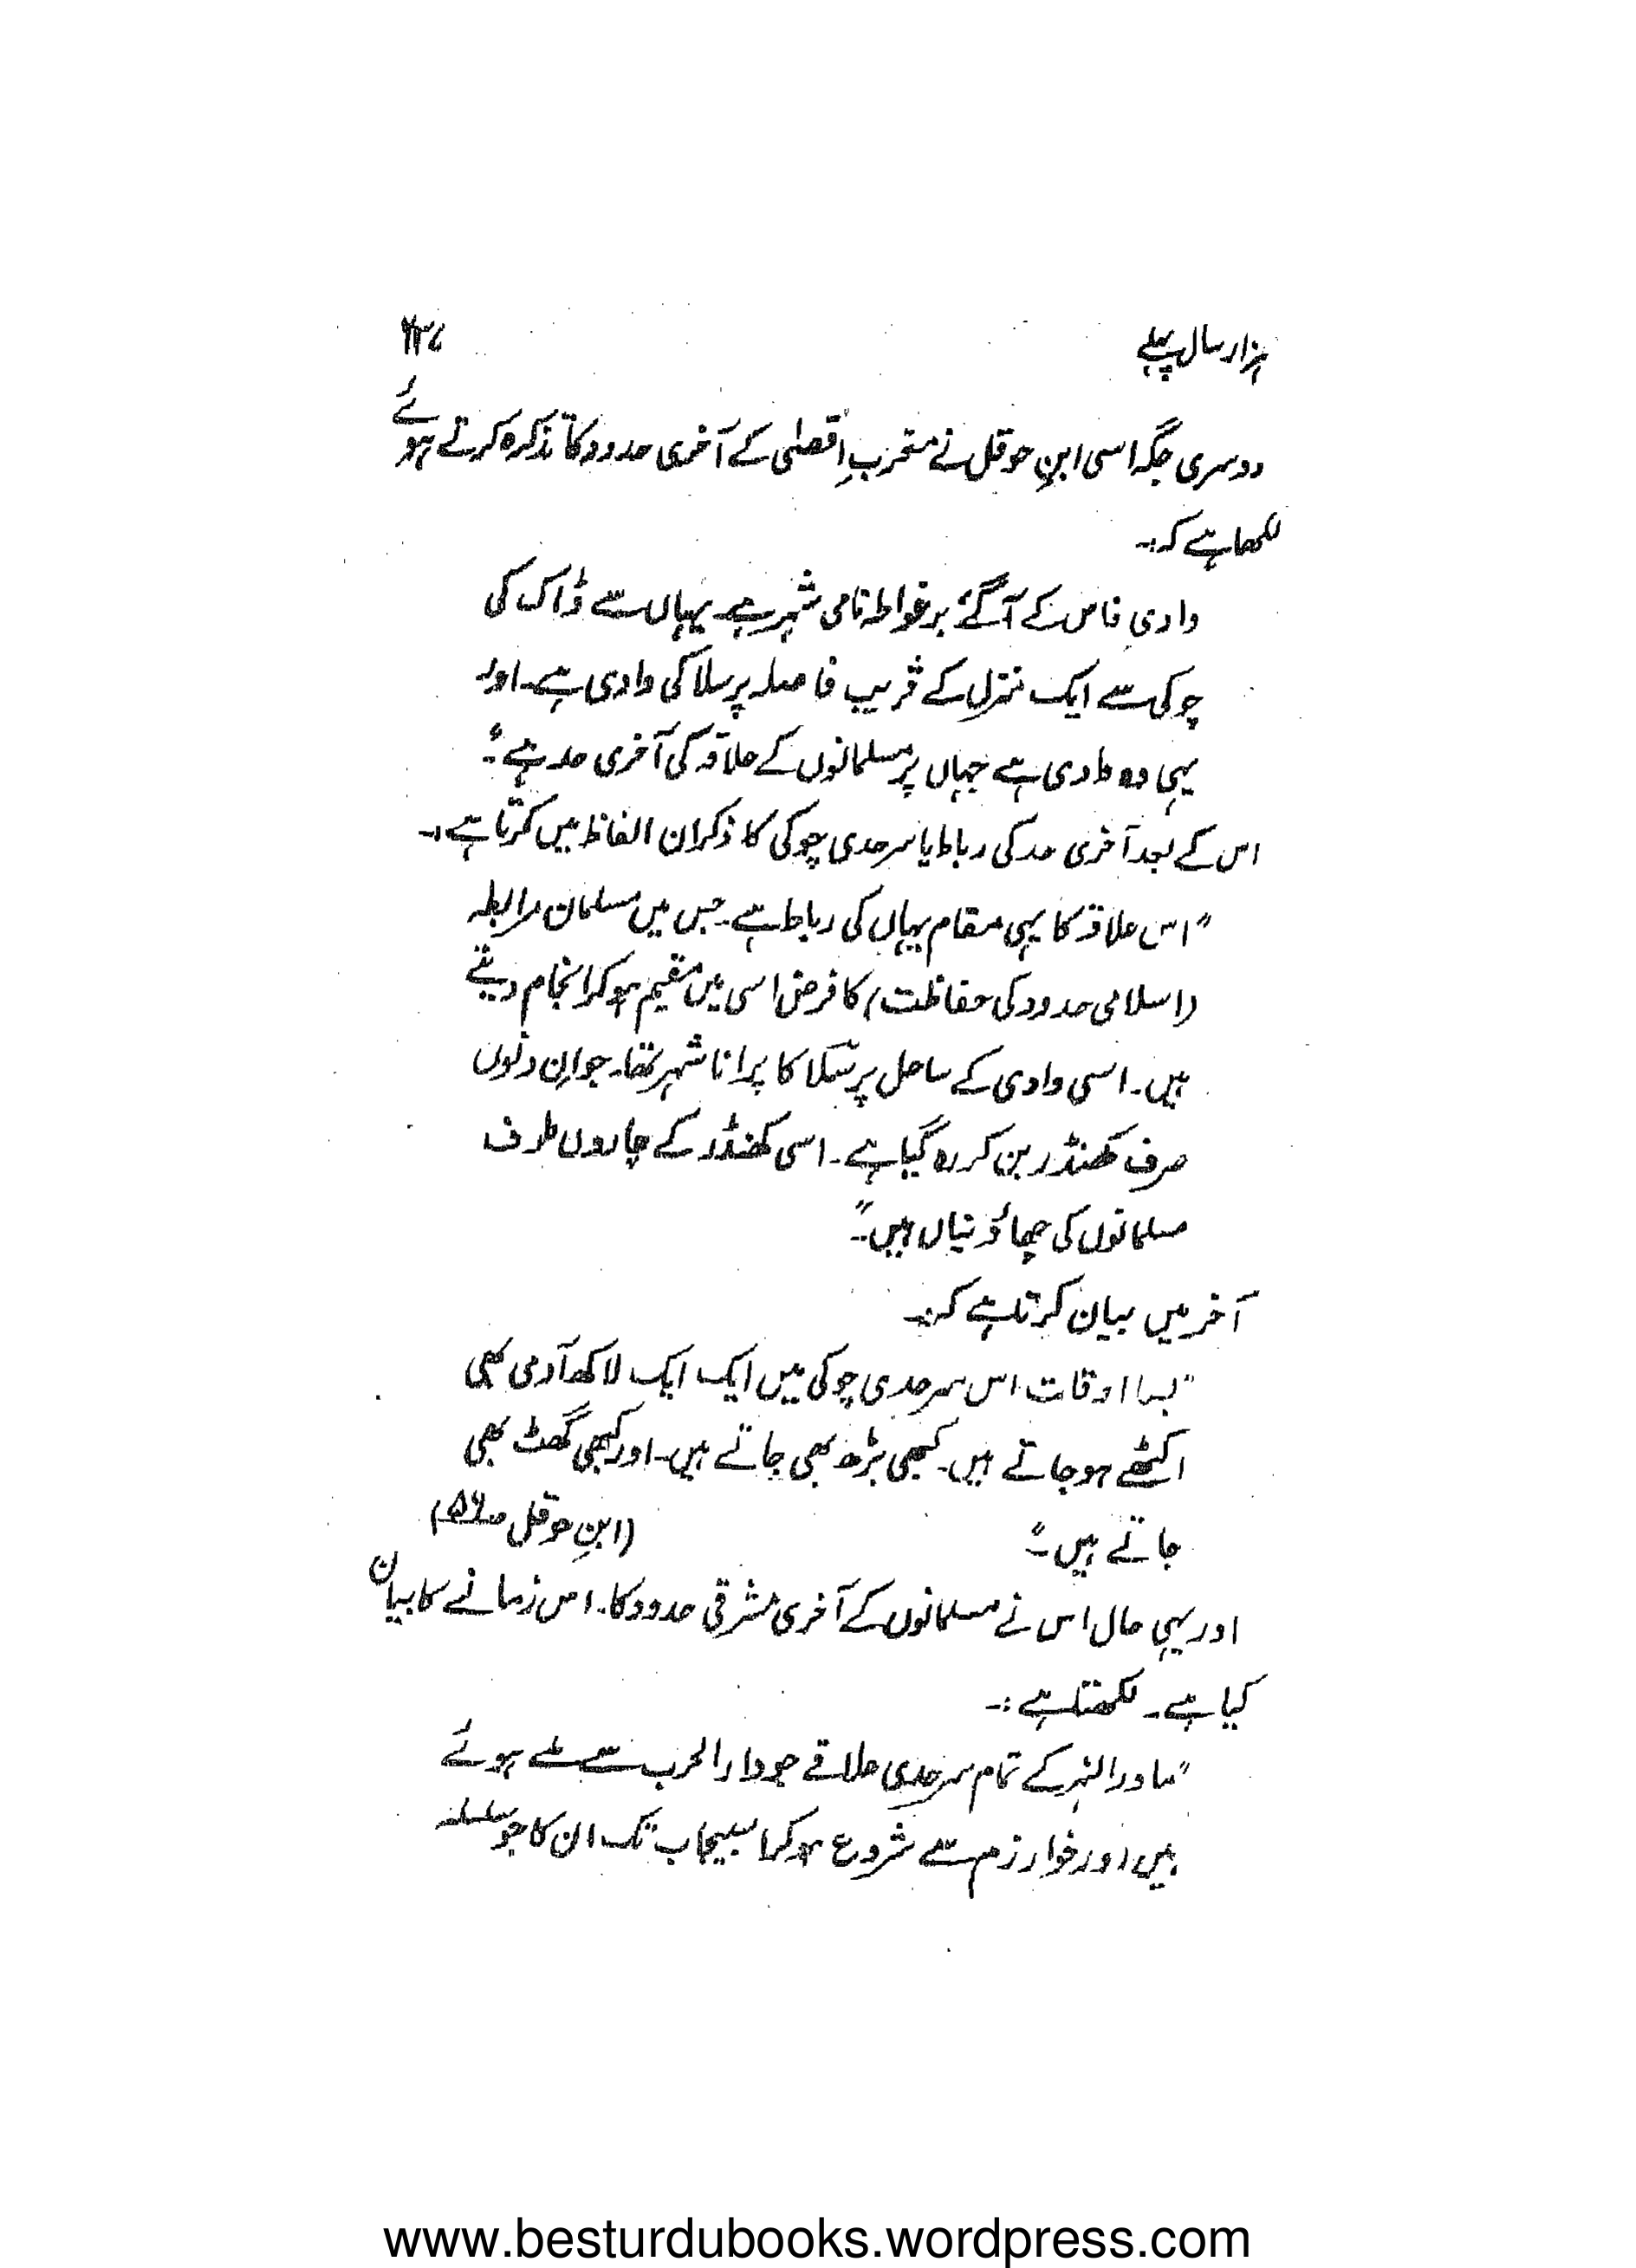 ہزار سال پہلے
دوسری جگہ اسی ابنِ حوقل نے مغربِ اقصٰی کے آخری حدود کا تذکرہ کرتے ہوئے
لکھا ہے کہ:۔
وادی فاس کے آگے برغواطہ نامی شہر ہے۔ یہاں سے ڈاک کی
چوکی سے ایک منزل کے قریب فاصلہ پر سلا کی وادی ہے۔ اور
یہی وہ وادی ہے جہاں پر مسلمانوں کے علاقہ کی آخری حد ہے"۔
اس کے بعد آخری حد کی رباط یا سرحدی چوکی کا ذکر ان الفاظ میں کرتا ہے:۔
"اس علاقہ کا یہی مقام یہاں کی رباط ہے۔ جس میں مسلمان مرابطہ
(اسلامی حدود کی حفاظت) کا فرض اسی میں مقیم ہو کر انجام دیتے
ہیں۔ اسی وادی کے ساحل پر سَلا کا پرانا شہر تھا۔ جو اِن دنوں
صرف کھنڈر بن کر رہ گیا ہے۔ اسی کھنڈر کے چاروں طرف
مسلمانوں کی چھاؤنیاں ہیں۔"
آخر میں بیان کرتا ہے کہ:۔
"بسا اوقات اس سرحدی چوکی میں ایک ایک لاکھ آدمی بھی
اکٹھے ہو جاتے ہیں۔ کبھی بڑھ بھی جاتے ہیں۔ اور کبھی گھٹ بھی
جاتے ہیں۔" (ابنِ حوقل صـ۵۶)
اور یہی حال اس نے مسلمانوں کے آخری مشرقی حدود کا۔ اس زمانے کا بیان
کیا ہے۔ لکھتا ہے:۔
"ماوراالنہر کے تمام سرحدی علاقے جو دارالحرب سے ملے ہوئے
ہیں اور خوارزم سے شروع ہو کر اسبیجاب تک ان کا جو سلسلہ
www.besturdubooks.wordpress.com